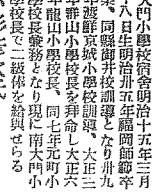 大門小學校宿舍明治十五年三月
十八日生明治卅五年福岡師範卒
、同縣御井校訓導となり卅九
年渡鮮京城小學校訓導、大正二
年群山小學校長を拜命し大正六
年龍山小學校長、同七年元町小
學校長兼務となり現に南大門小
學校長で二級俸を給與せらる